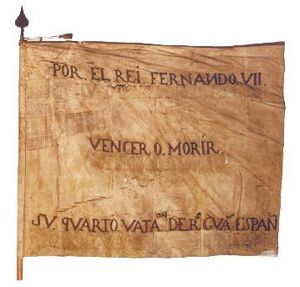 POR. EL. REI. FERNANDO. VII.
VENCER. O. MORIR.
SU. QUARTO. VATAᴼᴺ DE Rˢ GUAˢ ESPAÑ